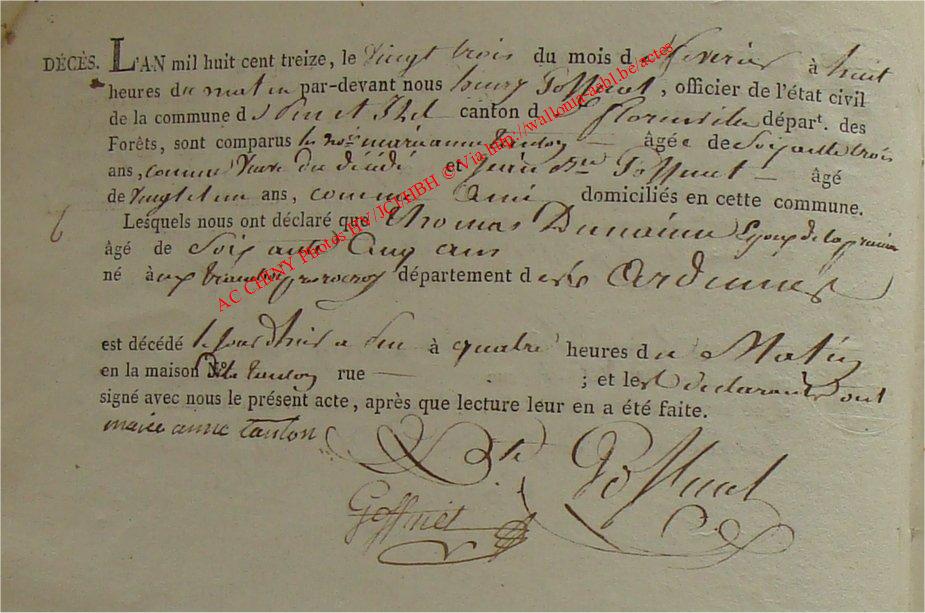 DÉCÈS. L'AN mil huit cent treize, le vingt trois du mois d fevrier à huit
heures du matin par-devant nous henry Goffinet, officier de l'état civil
de la commune d canton d florenville départ. des
Forêts, sont comparus marie anne tanton âgée de soixante trois
ans, comme veuve du décédé et jean Bte Goffinet âgé
de vingt et un ans, comme ami domiciliés en cette commune.
6 Lesquels nous ont déclaré que thomas Epoux de la première
âgé de soixante cinq ans
né à département des Ardennes
est décédé à quatre heures du Matin
en la maison N° tanton rue ; et les declarants ont
signé avec nous le présent acte, après que lecture leur en a été faite.
marie anne tanton Bte Goffinet
Goffinet
AC CHINY Photos HV / JCPHBH © Via http://wallonia-asbl.be/actes